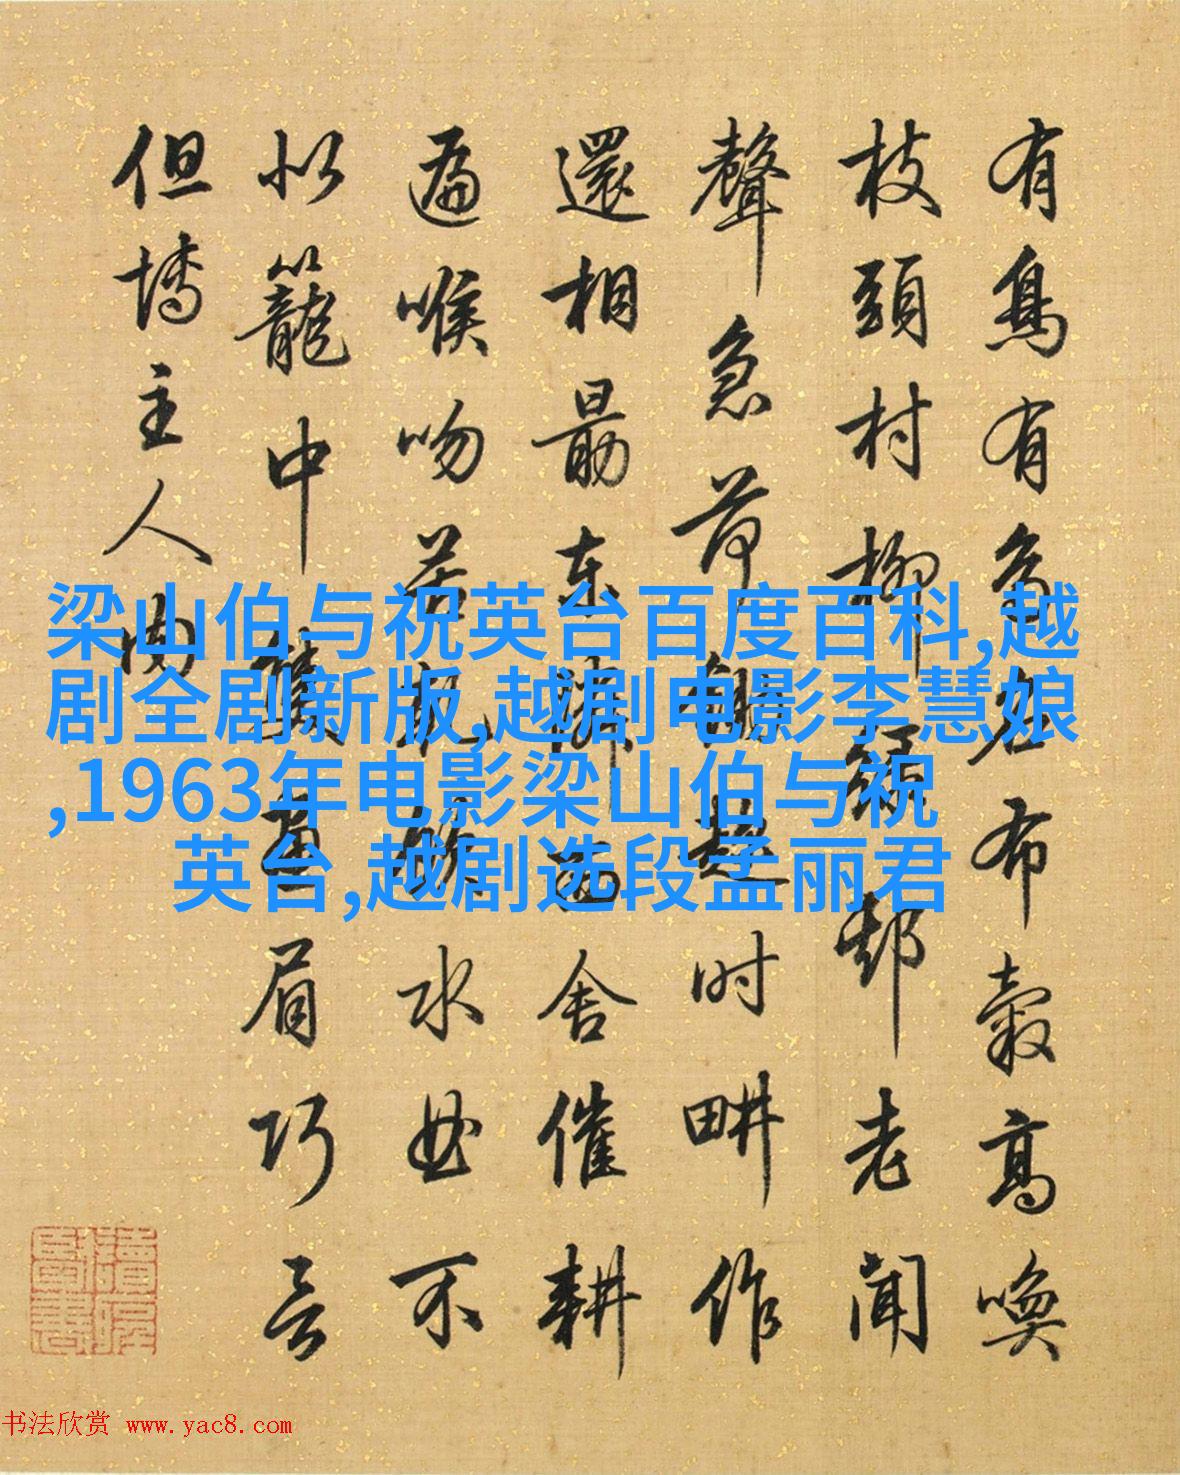 有鳥有鳥名布穀高喚
枝頭村柳綠老聞
聲急荷鋤趁時畊作
還相勗東鄰西舍催耕
遍喉吻若乾飲水曲不
似籠中雙畫眉巧言
但博主人肉
梁山伯与祝英台百度百科,越
剧全剧新版,越剧电影李慧娘
,1963年电影梁山伯与祝
英台,越剧选段孟丽君
书法欣赏 www.yac8.com